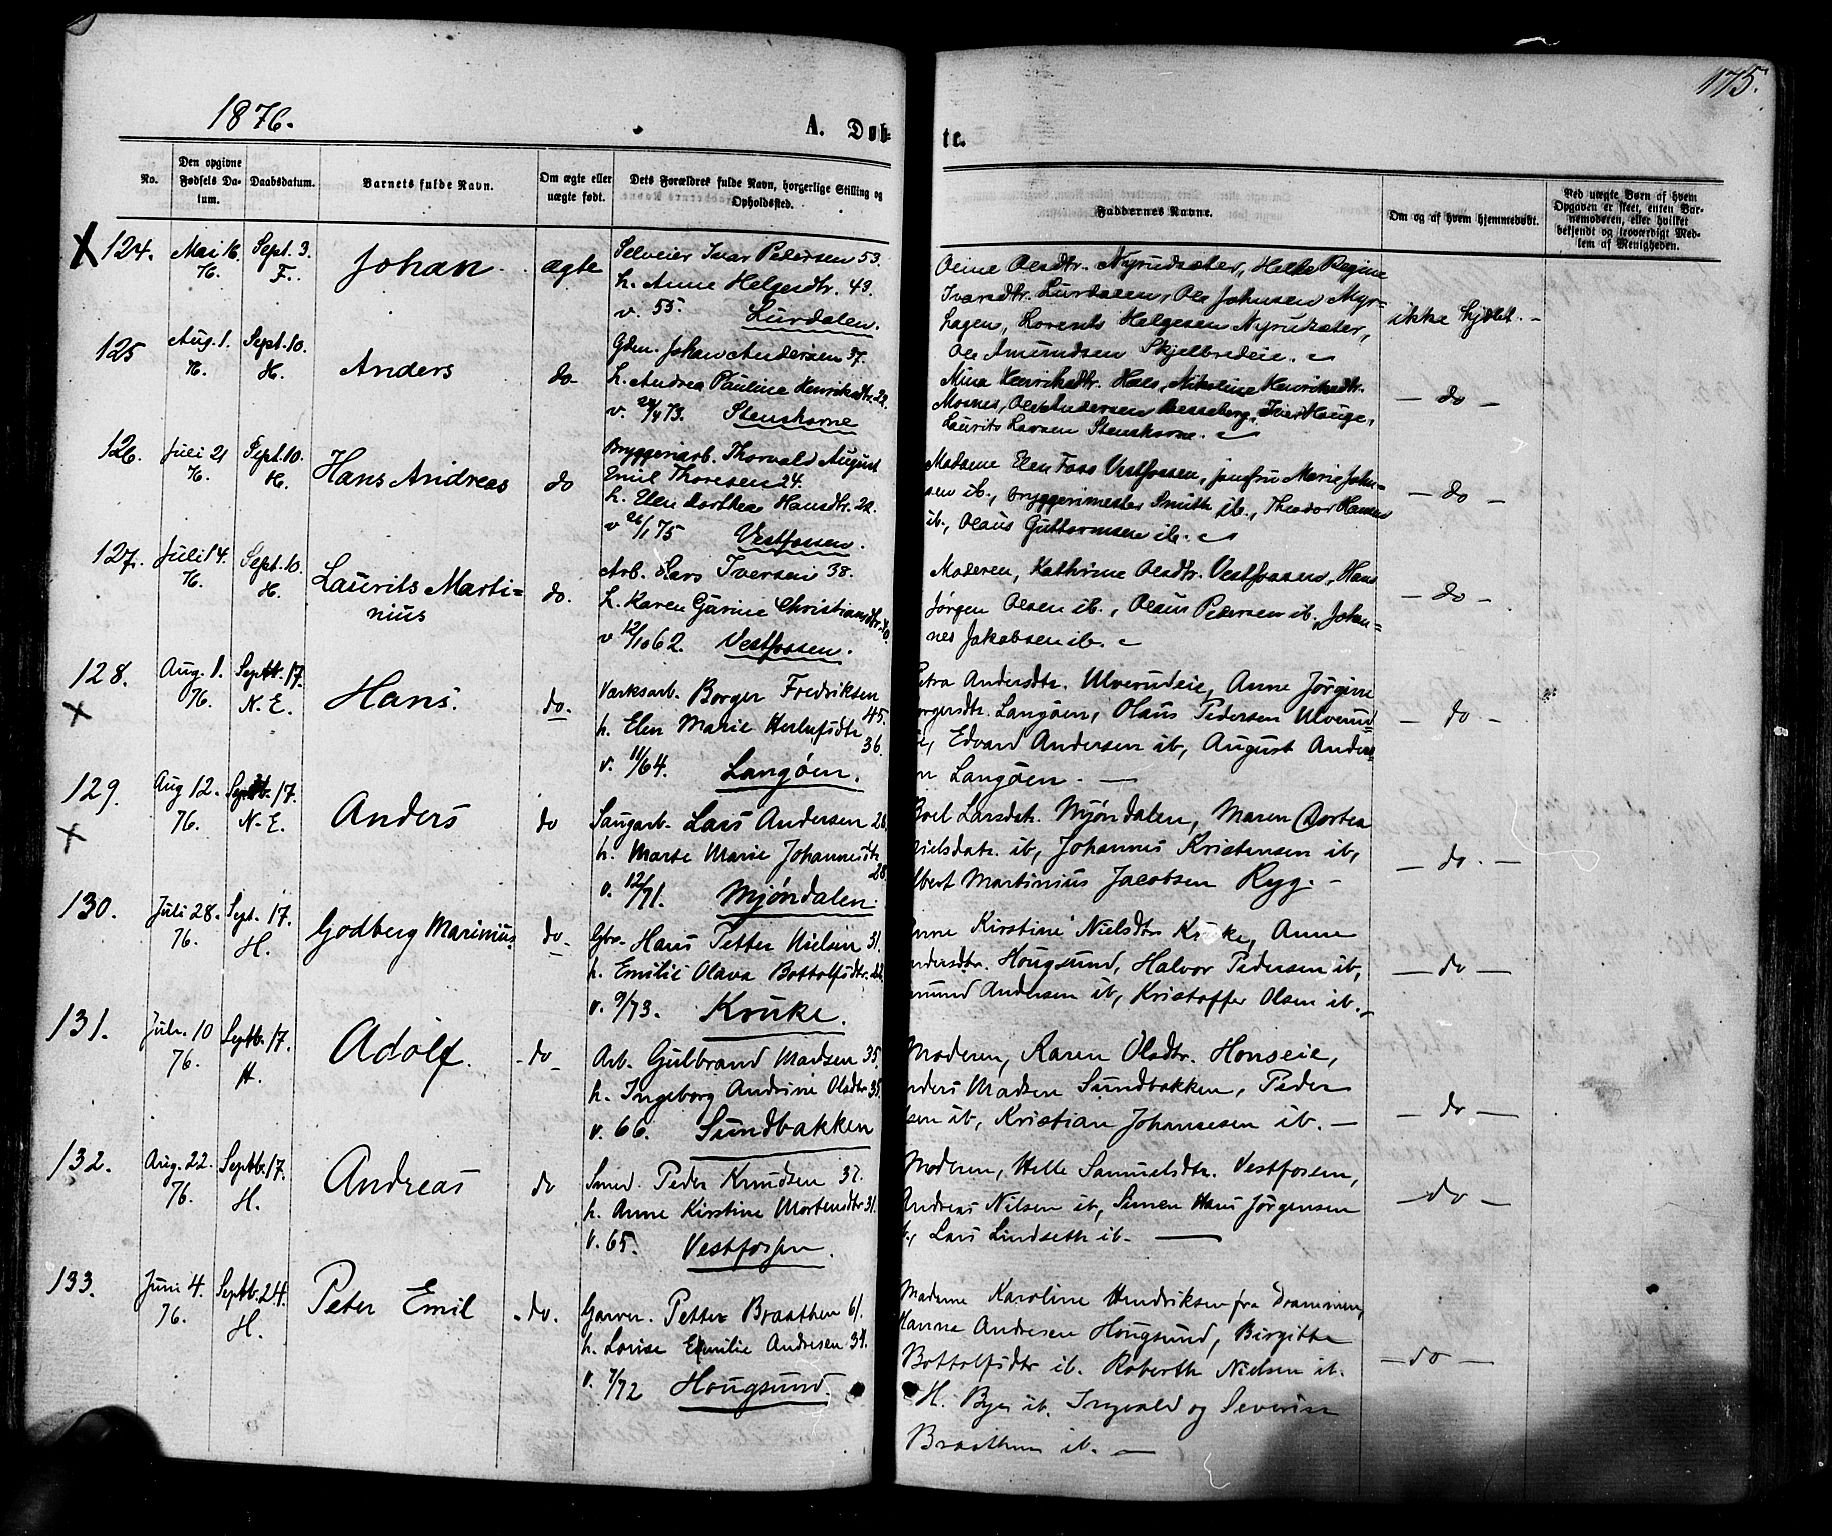 175.
1876.
A. Døb-
te.
No.
Den opgivne Fødsels Da-tum.
Daabsdatum.
Barnets fulde Navn.
Om ægte eller uægte født.
Dets Forældres fulde Navn, borgerlige Stilling og Opholdssted.
Faddernes Navne.
Om og af hvem hjemmedøbt.
Ved uægte Børn af hvem Opgaven er skeet, enten Bar-nemoderen, eller hvilket bekjendt og troværdigt Med-lem af Menigheden.
X 124. Mai 16. Sept. 3. Johan. ægte Selveier Ivar Pedersen 53.
76. F. h. Anne Helgesdtr. 43.
v. 55. Lurdalen.
Olsdtr. Nyrudsæter, Helle Regine
Ivarsdtr. Lurdalen, Ole Johnsen Myr-
hagen, Lorents Helgesen Nyrudsæter,
Ole Amundsen Skjelbredeie.
ikke hjdøbt. -
125 Aug. 1. Sept. 10. Anders do- Gdm. Johan Andersen 37.
76. H. h. Andrea Pauline Henriksdtr. 22.
v. /4 73. Stenshorne
Mina Henriksdtr. Hals, Nikoline Henriksdtr.
Mosnes, Ole Andersen Besseberg, Iver Hauge,
Laurits Larsen Stenshorne.
- do -
126. Juli 21 Sept. 10. Hans Andreas do Bryggeriarb. Thorvald August
76. H. Emil Thoresen 24.
h. Elen Dorthea Hansdtr. 22.
v 26/1 75 Vestfossen.
Madame Elen Foss Vestfossen, jomfru Marie John-
sen ib., bryggerimester Smith ib., Theodor Hansen
ib., Olaus Guttormsen ib.
- do -
127. Juli 14. Sept. 10. Laurits Marti-
nius do. Arb. Lars Iversen 38.
76. H. h. Karen Gurine Christiansdtr. 40.
v 12/10 62. Vestfossen.
Moderen, Kathrine Olsdtr. Vestfossen, Hans
Jørgen Olsen ib., Olaus Pedersen ib., Johan-
nes Jakobsen ib.
- do -
128. Aug. 1. Septb. 17. Hans. do. Værksarb. Borger Fredriksen
X 76. N. E. 45.
h. Elen Marie Herlufsdtr
36.
v. 11/64. Langøen.
Petra Andersdtr. Ulverudeie, Anne Jørgine
orgersdtr. Langøen, Olaus Pedersen Ulverud-
ie, Edvard Andersen ib, August Anders-
n Langøen. -
- do -
129. Aug 12. Septb. 17. Anders do Saugarb. Lars Andersen 28,
X 76. N. E. h. Marte Marie Johannesdtr
28.
v. 12/71. Mjøndalen.
Boel Larsdtr. Mjøndalen, Maren Dortea
Nielsdatr. ib, Johannes Kristensen ib,
lbert Martinius Jacobsen Ryg. -
- do. -
130. Juli 28. Sept. 17. Godberg Marinius. do- Gbr. Hans Petter Nielsen 31.
76. H. h. Emilie Olava Bottolfsdtr. 22.
v. 9/73. Kruke.
nne Kirstine Nielsdtr Kruke, Anne
ndersdtr. Hougsund, Halvor Pedersen ib,
mund Andersen ib, Kristoffer Olsen ib.
- do -
131. Jul. 10 Septb. 17. Adolf. -do- Arb. Gulbrand Madsen 35.
76. H. h. Ingeborg Andrine Olsdtr 35.
v. 66. Sundbakken
Moderen, Karen Olsdtr. Honseie,
nders Madsen Sundbakken, Peder
sen ib, Kristian Johannesen ib. -
- do -
132. Aug. 22. Septb. 17. Andreas do Smed. Peder Knudsen 37.
76. H. h. Anne Kirstine Mortensdtr 31.
v. 65. Vestfossen.
Moderen, Helle Samuelsdtr. Vestfossen,
Andreas Nilsen ib, Simen Hans Jørgensen
., Lars Lindseth ib. -
- do -
133. Juni 4. Septb. 24. Peter Emil -do. Garver. Petter Braathen 61.
76. H. h. Lovise Emilie Andresen 34.
v. 7/72 Hougsund.
Madame Karoline Hendriksen fra Drammen,
Hanna Andresen Hougsund, Birgitte
Bottolfsdtr ib. Roberth Nielsen ib.
H. Bye ib. Ingvald og Severin
Braathen ib. -
- do -